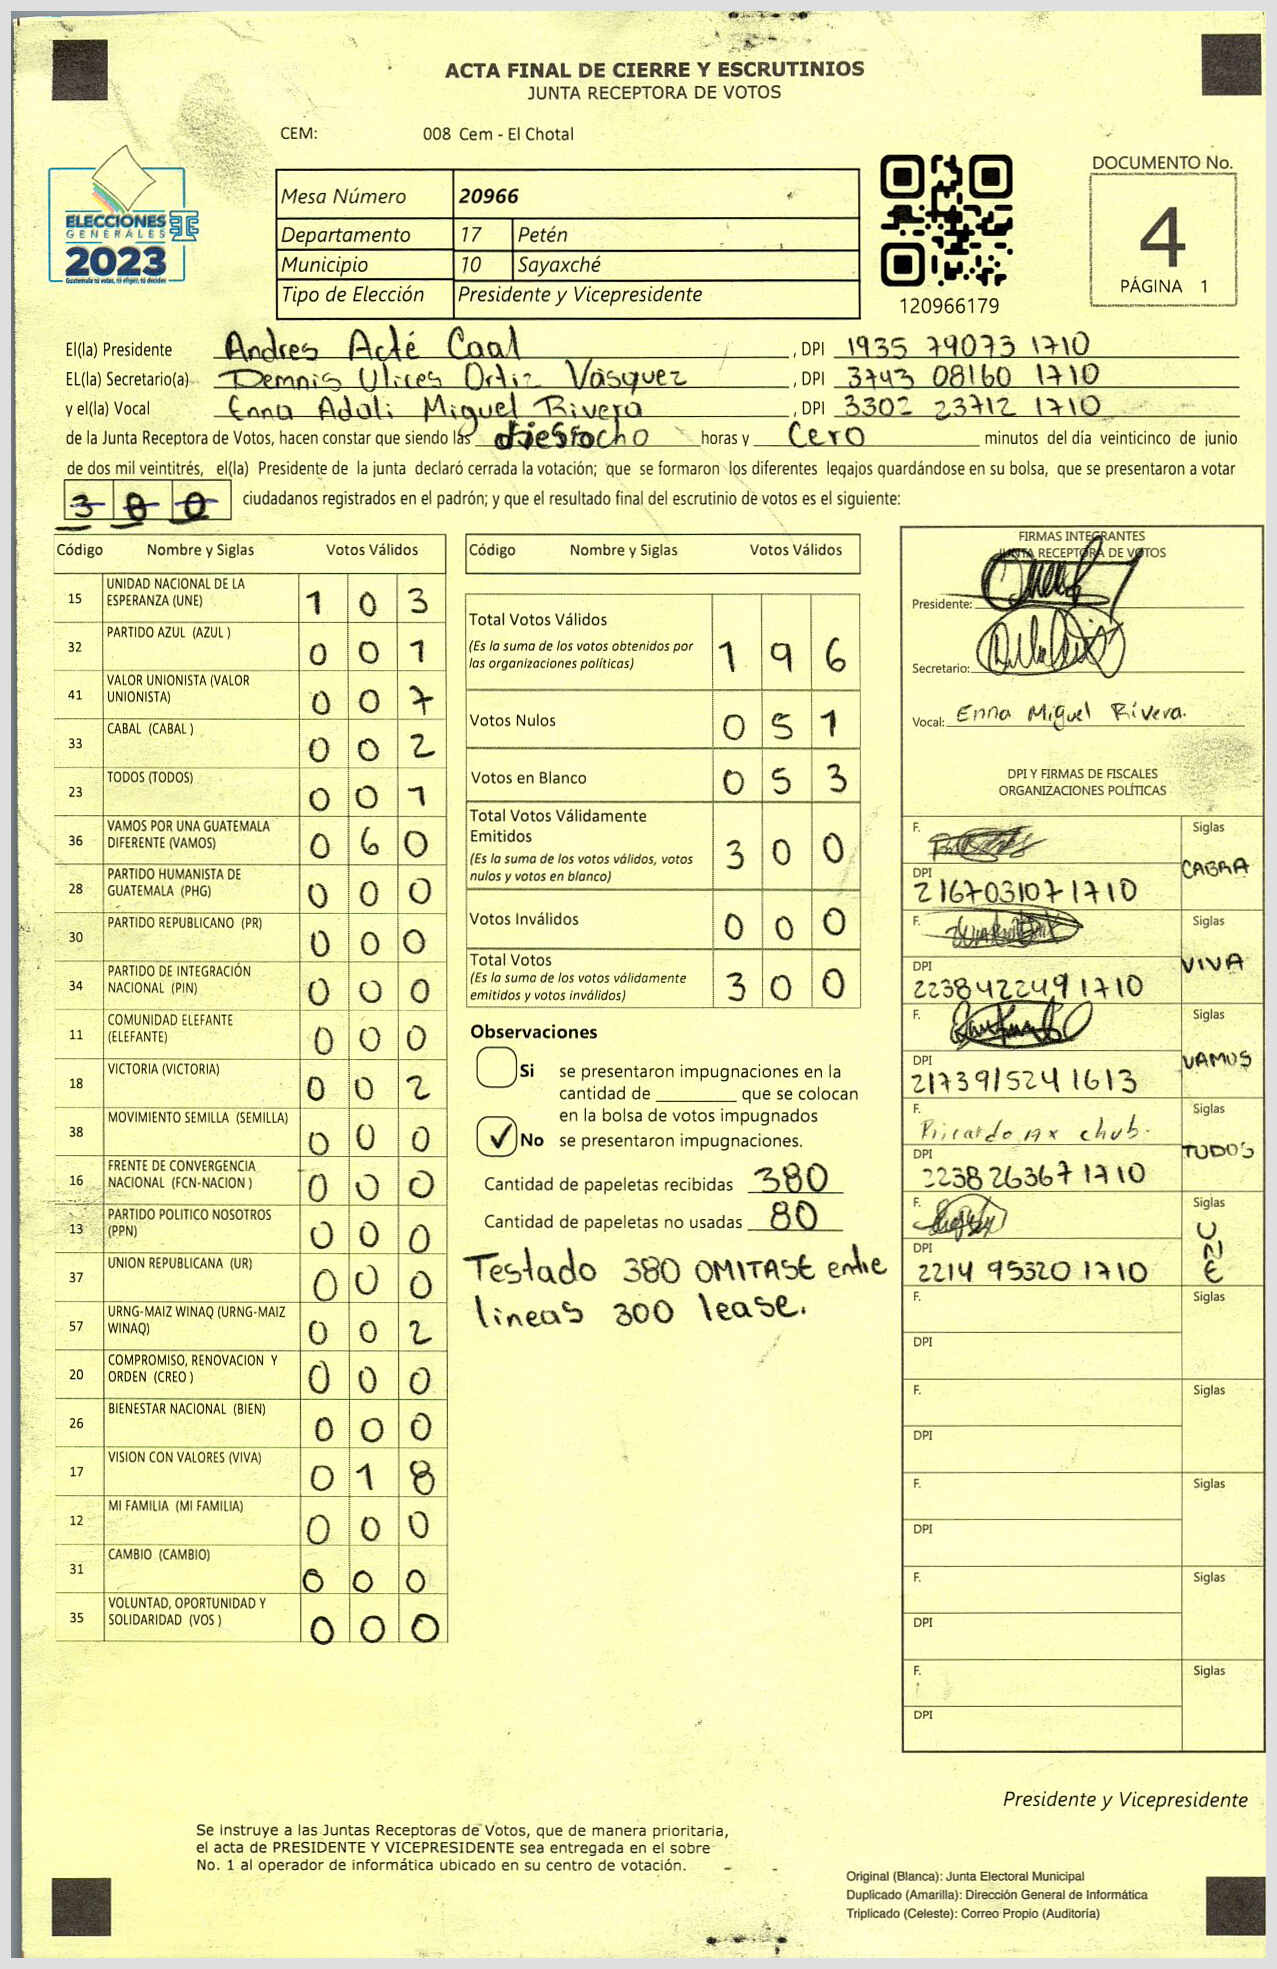 ACTA FINAL DE CIERRE Y ESCRUTINIOS
JUNTA RECEPTORA DE VOTOS
CEM: 008 Cem - El Chotal
ELECCIONES
GENERALES
2023
Guatemala tú votas, tú eliges, tú decides
Mesa Número 20966
Departamento 17 Petén
Municipio 10 Sayaxché
Tipo de Elección Presidente y Vicepresidente
120966179
DOCUMENTO No.
4
PÁGINA 1
El(la) Presidente Andres Acté Caal , DPI 1935 79073 1710
EL(la) Secretario(a) Demnis Ulices Ortiz Vásquez , DPI 3743 08160 1710
y el(la) Vocal Enna Adali Miguel Rivera , DPI 3302 23712 1710
de la Junta Receptora de Votos, hacen constar que siendo las dieciocho horas y Cero minutos del día veinticinco de junio
de dos mil veintitrés, el(la) Presidente de la junta declaró cerrada la votación; que se formaron los diferentes legajos guardándose en su bolsa, que se presentaron a votar
3 8 0 ciudadanos registrados en el padrón; y que el resultado final del escrutinio de votos es el siguiente:
Código Nombre y Siglas Votos Válidos
15 UNIDAD NACIONAL DE LA ESPERANZA (UNE) 1 0 3
32 PARTIDO AZUL (AZUL ) 0 0 1
41 VALOR UNIONISTA (VALOR UNIONISTA) 0 0 7
33 CABAL (CABAL ) 0 0 2
23 TODOS (TODOS) 0 0 1
36 VAMOS POR UNA GUATEMALA DIFERENTE (VAMOS) 0 6 0
28 PARTIDO HUMANISTA DE GUATEMALA (PHG) 0 0 0
30 PARTIDO REPUBLICANO (PR) 0 0 0
34 PARTIDO DE INTEGRACIÓN NACIONAL (PIN) 0 0 0
11 COMUNIDAD ELEFANTE (ELEFANTE) 0 0 0
18 VICTORIA (VICTORIA) 0 0 2
38 MOVIMIENTO SEMILLA (SEMILLA) 0 0 0
16 FRENTE DE CONVERGENCIA NACIONAL (FCN-NACION ) 0 0 0
13 PARTIDO POLITICO NOSOTROS (PPN) 0 0 0
37 UNION REPUBLICANA (UR) 0 0 0
57 URNG-MAIZ WINAQ (URNG-MAIZ WINAQ) 0 0 2
20 COMPROMISO, RENOVACION Y ORDEN (CREO ) 0 0 0
26 BIENESTAR NACIONAL (BIEN) 0 0 0
17 VISION CON VALORES (VIVA) 0 1 8
12 MI FAMILIA (MI FAMILIA) 0 0 0
31 CAMBIO (CAMBIO) 0 0 0
35 VOLUNTAD, OPORTUNIDAD Y SOLIDARIDAD (VOS ) 0 0 0
Código Nombre y Siglas Votos Válidos
Total Votos Válidos
(Es la suma de los votos obtenidos por las organizaciones políticas) 1 9 6
Votos Nulos 0 5 1
Votos en Blanco 0 5 3
Total Votos Válidamente Emitidos
(Es la suma de los votos válidos, votos nulos y votos en blanco) 3 0 0
Votos Inválidos 0 0 0
Total Votos
(Es la suma de los votos válidamente emitidos y votos inválidos) 3 0 0
Observaciones
Si se presentaron impugnaciones en la
cantidad de ________ que se colocan
en la bolsa de votos impugnados
✓ No se presentaron impugnaciones.
Cantidad de papeletas recibidas 380
Cantidad de papeletas no usadas 80
Testado 380 OMITASE entre
lineas 300 lease.
FIRMAS INTEGRANTES
JUNTA RECEPTORA DE VOTOS
Presidente:
Secretario:
Vocal: Enna Miguel Rivera.
DPI Y FIRMAS DE FISCALES
ORGANIZACIONES POLÍTICAS
F. Siglas
CABRA
DPI
216703107 1710
F. Siglas
VIVA
DPI
223842249 1710
F. Siglas
VAMOS
DPI
217391524 1613
F. Siglas
Ricardo Ax chub.
TUDOS
DPI
2238 26367 1710
F. Siglas
UNE
DPI
2214 95320 1710
F. Siglas
DPI
F. Siglas
DPI
F. Siglas
DPI
F. Siglas
DPI
F. Siglas
DPI
Presidente y Vicepresidente
Se instruye a las Juntas Receptoras de Votos, que de manera prioritaria,
el acta de PRESIDENTE Y VICEPRESIDENTE sea entregada en el sobre
No. 1 al operador de informática ubicado en su centro de votación.
Original (Blanca): Junta Electoral Municipal
Duplicado (Amarilla): Dirección General de Informática
Triplicado (Celeste): Correo Propio (Auditoría)